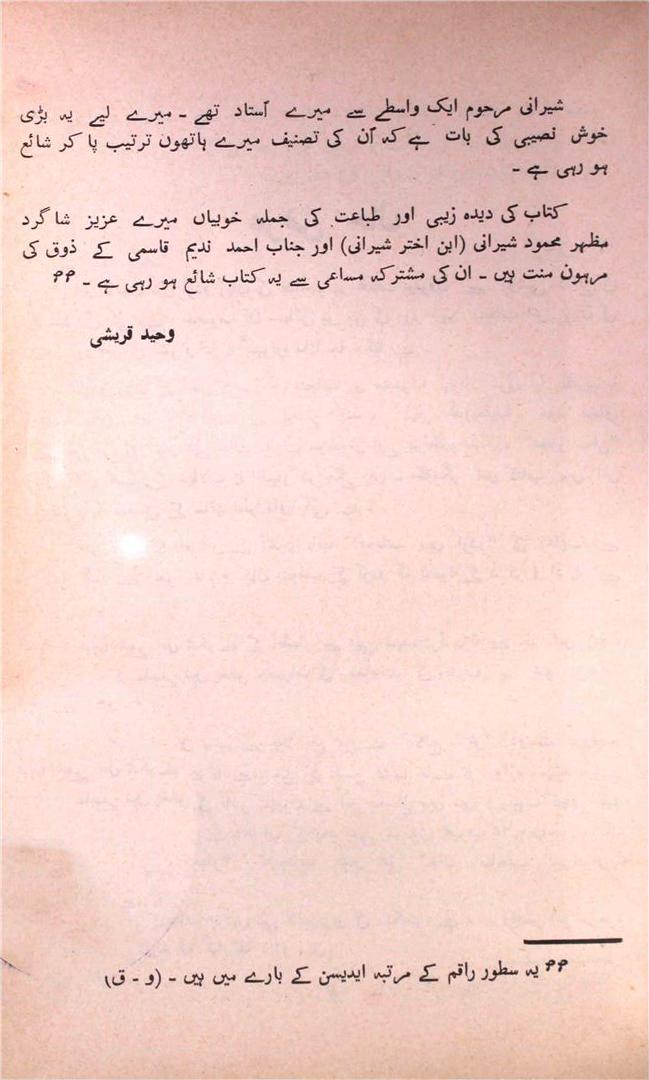 شیرانی مرحوم ایک واسطے سے میرے اُستاد تھے ۔ میرے لیے یہ بڑی
خوش نصیبی کی بات ہے کہ اُن کی تصنیف میرے ہاتھوں ترتیب پا کر شائع
ہو رہی ہے ۔
کتاب کی دیدہ زیبی اور طباعت کی جملہ خوبیاں میرے عزیز شاگرد
مظہر محمود شیرانی (ابن اختر شیرانی) اور جناب احمد ندیم قاسمی کے ذوق کی
مرہون منت ہیں ۔ ان کی مشترکہ مساعی سے یہ کتاب شائع ہو رہی ہے ۔
وحید قریشی
یہ سطور راقم کے مرتبہ ایڈیسن کے بارے میں ہیں ۔ (و ۔ ق)